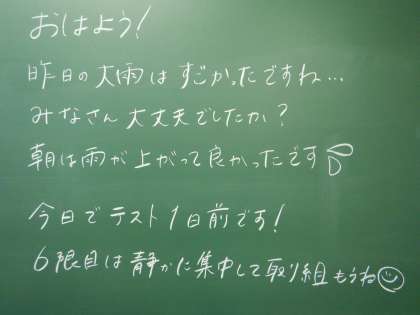 おはよう!
昨日の大雨はすごかったですね…
みなさん大丈夫でしたか?
朝は雨が上がって良かったです
今日でテスト1日前です!
6限目は静かに集中して取り組もうね